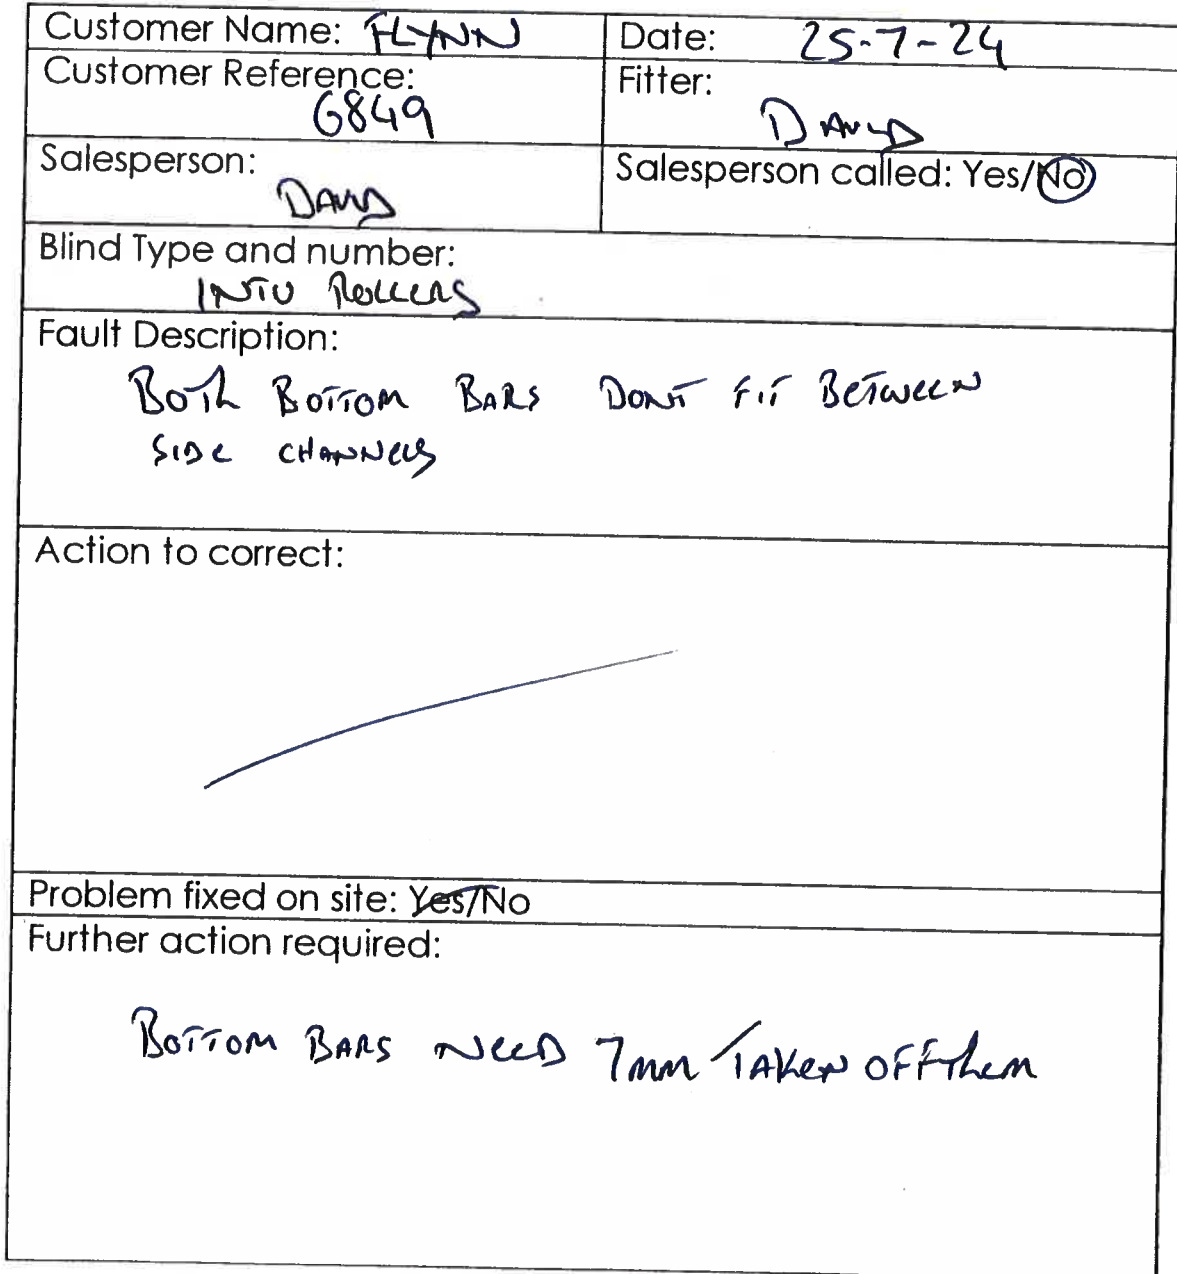 Customer Name: FLYNN
Date: 25-7-24
Customer Reference:
6849
Fitter:
DAVID
Salesperson:
DAVID
Salesperson called: Yes/No
Blind Type and number:
INTU ROLLERS
Fault Description:
BOTH BOTTOM BARS DONT FIT BETWEEN
SIDE CHANNELS
Action to correct:
Problem fixed on site: Yes/No
Further action required:
BOTTOM BARS NEED 7mm TAKEN OFF THEM